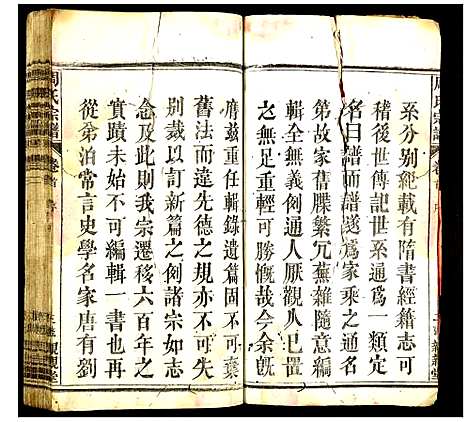 系分别紀載有隋書經籍志可
稽後世傳記世系通爲一類定
名曰譜而譜遂爲家乘之通例
第故家舊牒繁冗蕪雜隨意編
輯全無義例通人厭觀人人巴
爲無足輕重良可慨哉今余既
膺兹重任輯錄遺篇固不可棄
舊法而違先德之規亦不可失
别裁以訂新篇之例諸宗如志
念及此則我宗遷移六百年之
實蹟未始不可編輯一書也再
從弟泊常言史學名家唐有劉
周氏宗譜
卷首
周氏宗譜
卷首 序